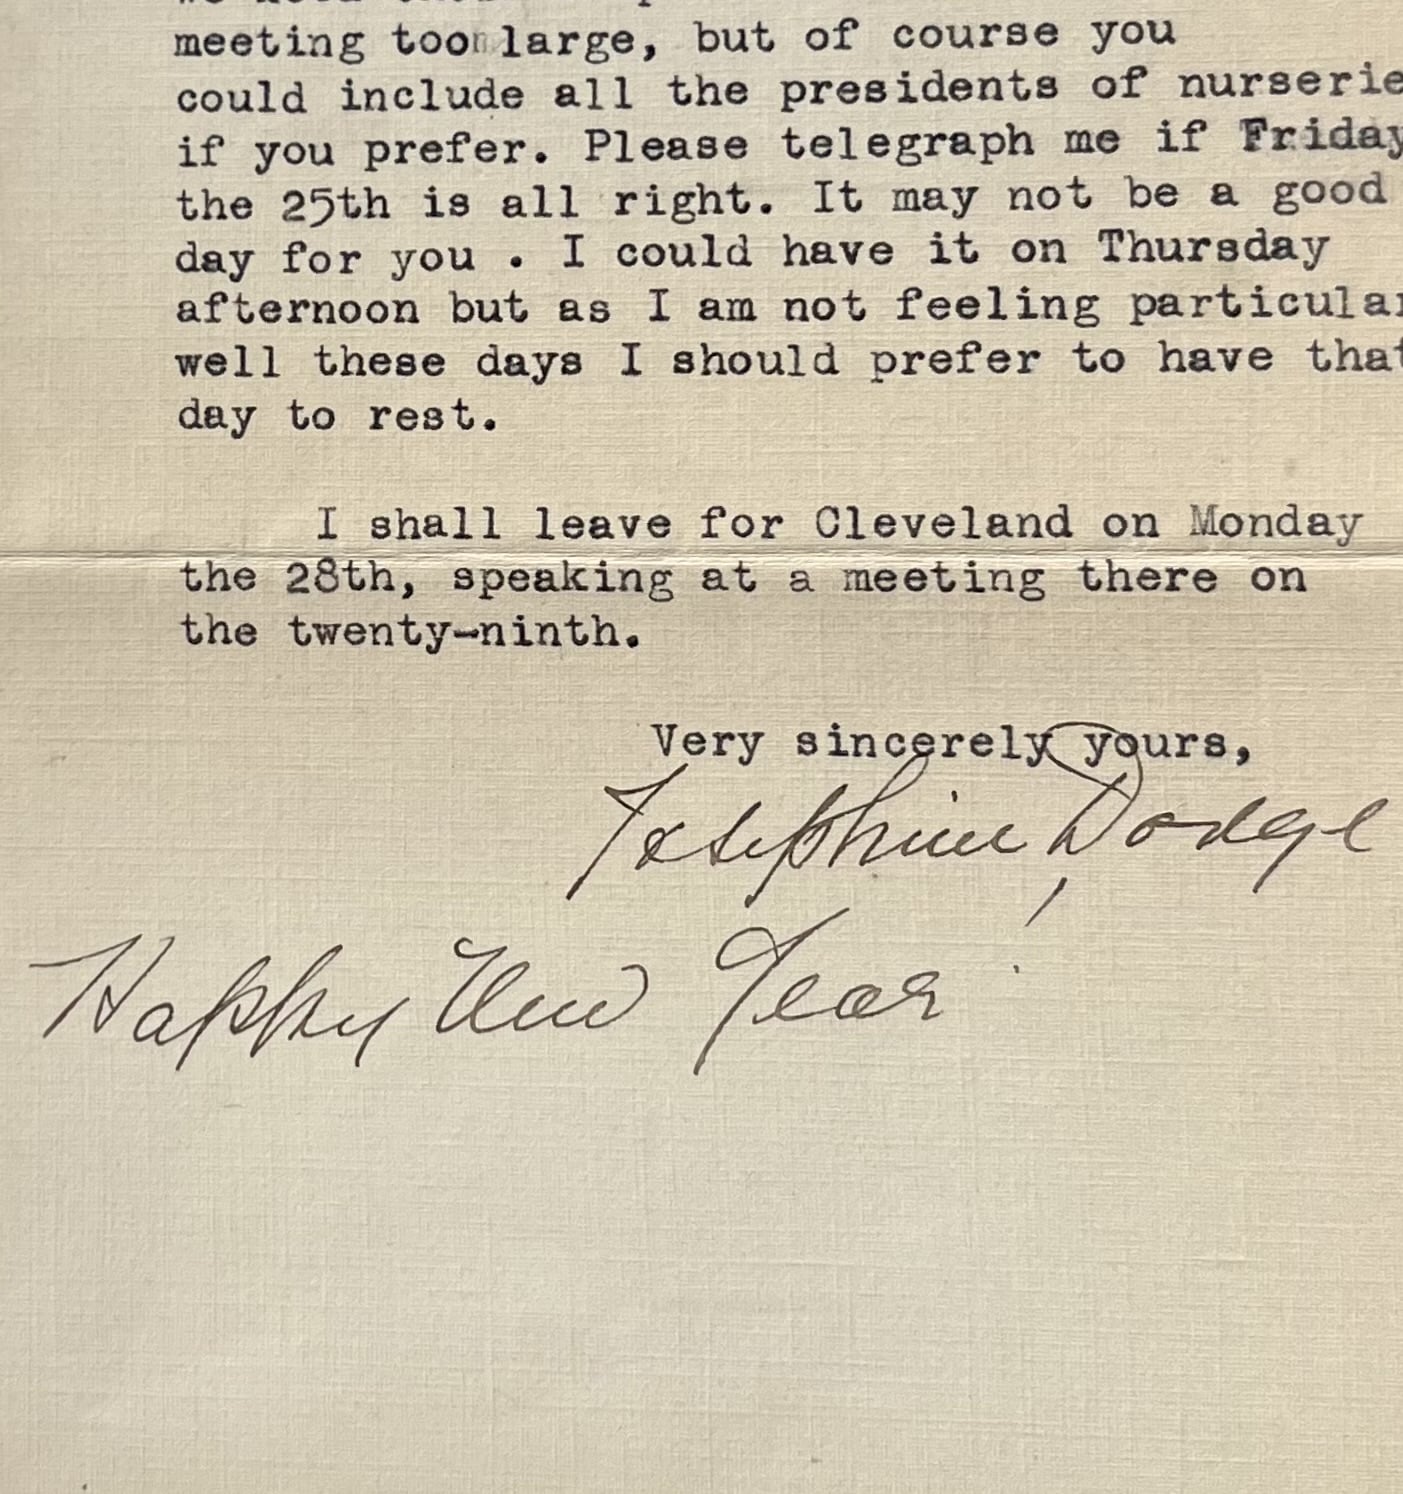 meeting too large, but of course you
could include all the presidents of nurserie
if you prefer. Please telegraph me if Friday
the 25th is all right. It may not be a good
day for you . I could have it on Thursday
afternoon but as I am not feeling particular
well these days I should prefer to have that
day to rest.
I shall leave for Cleveland on Monday
the 28th, speaking at a meeting there on
the twenty-ninth.
Very sincerely yours,
Josephine Dodge
Happy New Year!